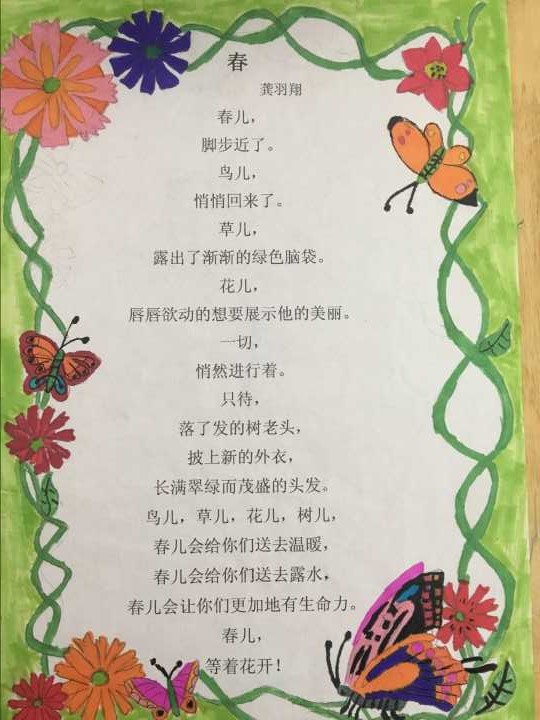 春
龚羽翔
春儿，
脚步近了。
鸟儿，
悄悄回来了。
草儿，
露出了渐渐的绿色脑袋。
花儿，
唇唇欲动的想要展示他的美丽。
一切，
悄然进行着。
只待，
落了发的树老头，
披上新的外衣，
长满翠绿而茂盛的头发。
鸟儿，草儿，花儿，树儿，
春儿会给你们送去温暖，
春儿会给你们送去露水，
春儿会让你们更加地有生命力。
春儿，
等着花开！